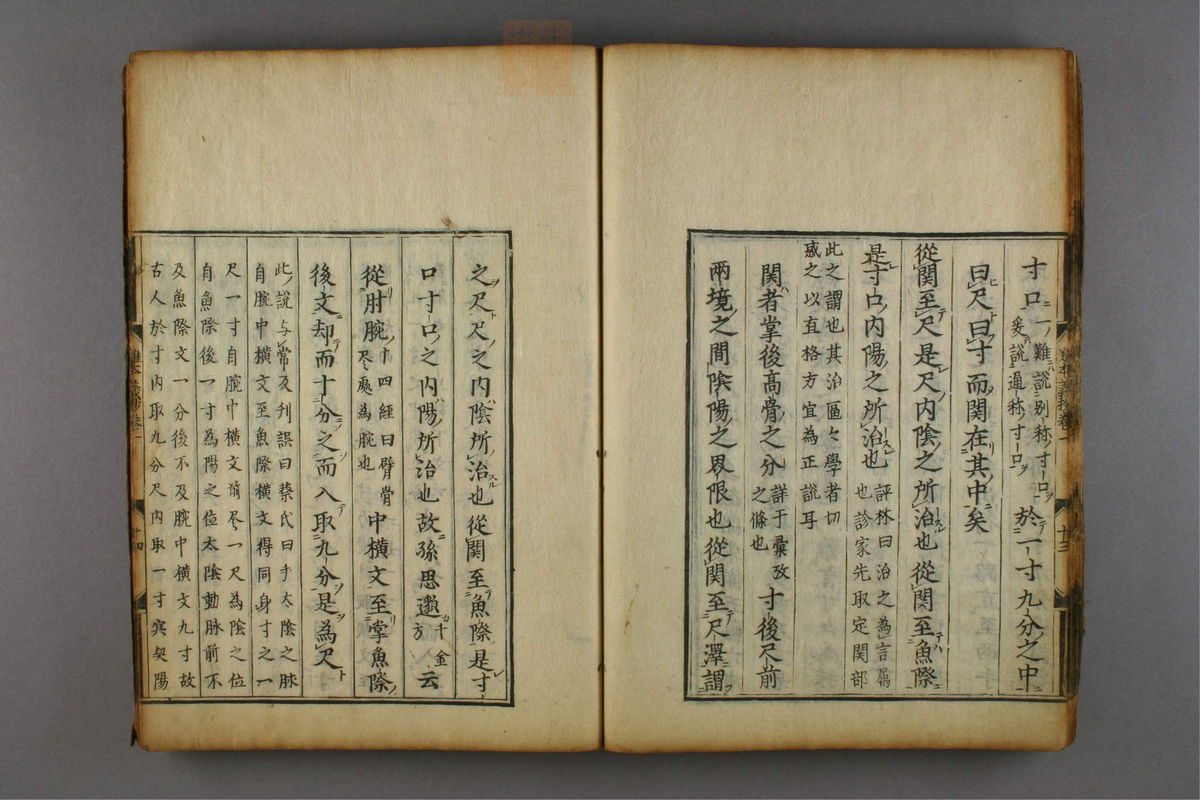 寸口一難說別称寸口爰說通称寸口於一寸九分之中
曰尺曰寸而関在其中矣
從関至尺是尺内陰之所治也從関至魚際
是寸口内陽之所治也評林曰治之為言属也診家先取定関部
此之謂也其治區々學者切惑之以直格方宜為正說耳
関者掌後高骨之分詳于彙攷之條也寸後尺前
兩境之間陰陽之界限也從関至尺澤謂
之尺尺之内陰所治也從関至魚際是寸
口寸口之内陽所治也故孫思邈千金方云
從肘腕巾四經曰臂骨尽處為腕也中横文至掌魚際
後文却而十分之而入取九分是為尺
此說与常及刋誤曰蔡氏曰手太陰之脉
自腕中横文至魚際横文得同身寸之一
尺一寸自腕中横文前尽一尺為陰之位
自魚際後一寸為陽之位太陰動脉前不
及魚際文一分後不及腕中横文九寸故
古人於寸内取九分尺内取一寸宾契陽